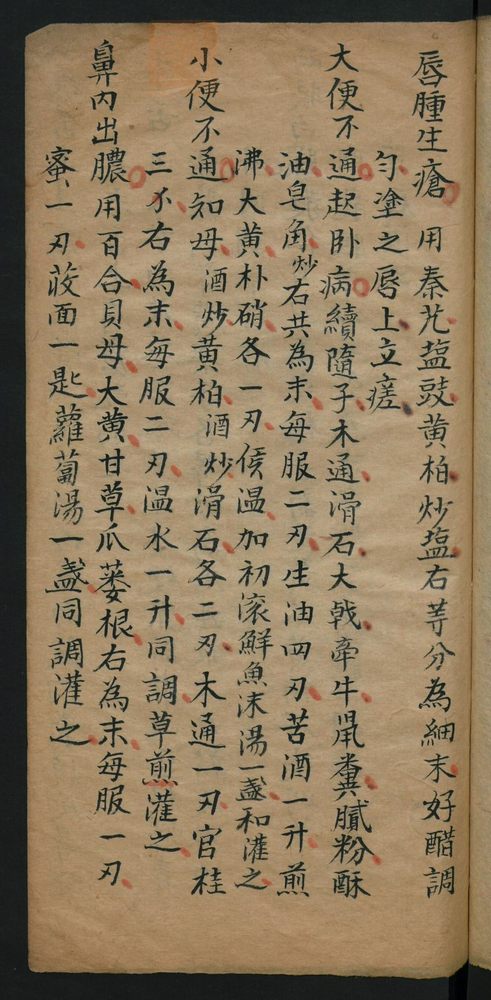 唇腫生瘡　用秦艽塩豉黄柏炒塩右等分為細末好醋調
勻塗之唇上立瘥
大便不通起卧病續隨子木通滑石大戟牽牛鼡糞膩粉酥
油皂角炒右共為末每服二刄生油四刄苦酒一升煎
沸大黄朴硝各一刄俟温加初滚鮮魚沫湯一盞和灌之
小便不通知母酒炒黄柏酒炒滑石各二刄木通一刄官桂
三个右為末每服二刄温水一升同調草煎灌之
鼻内出膿用百合貝母大黄甘草爪蒌根右為末每服一刄
蜜一刄荍面一匙蘿蔔湯一盞同調灌之